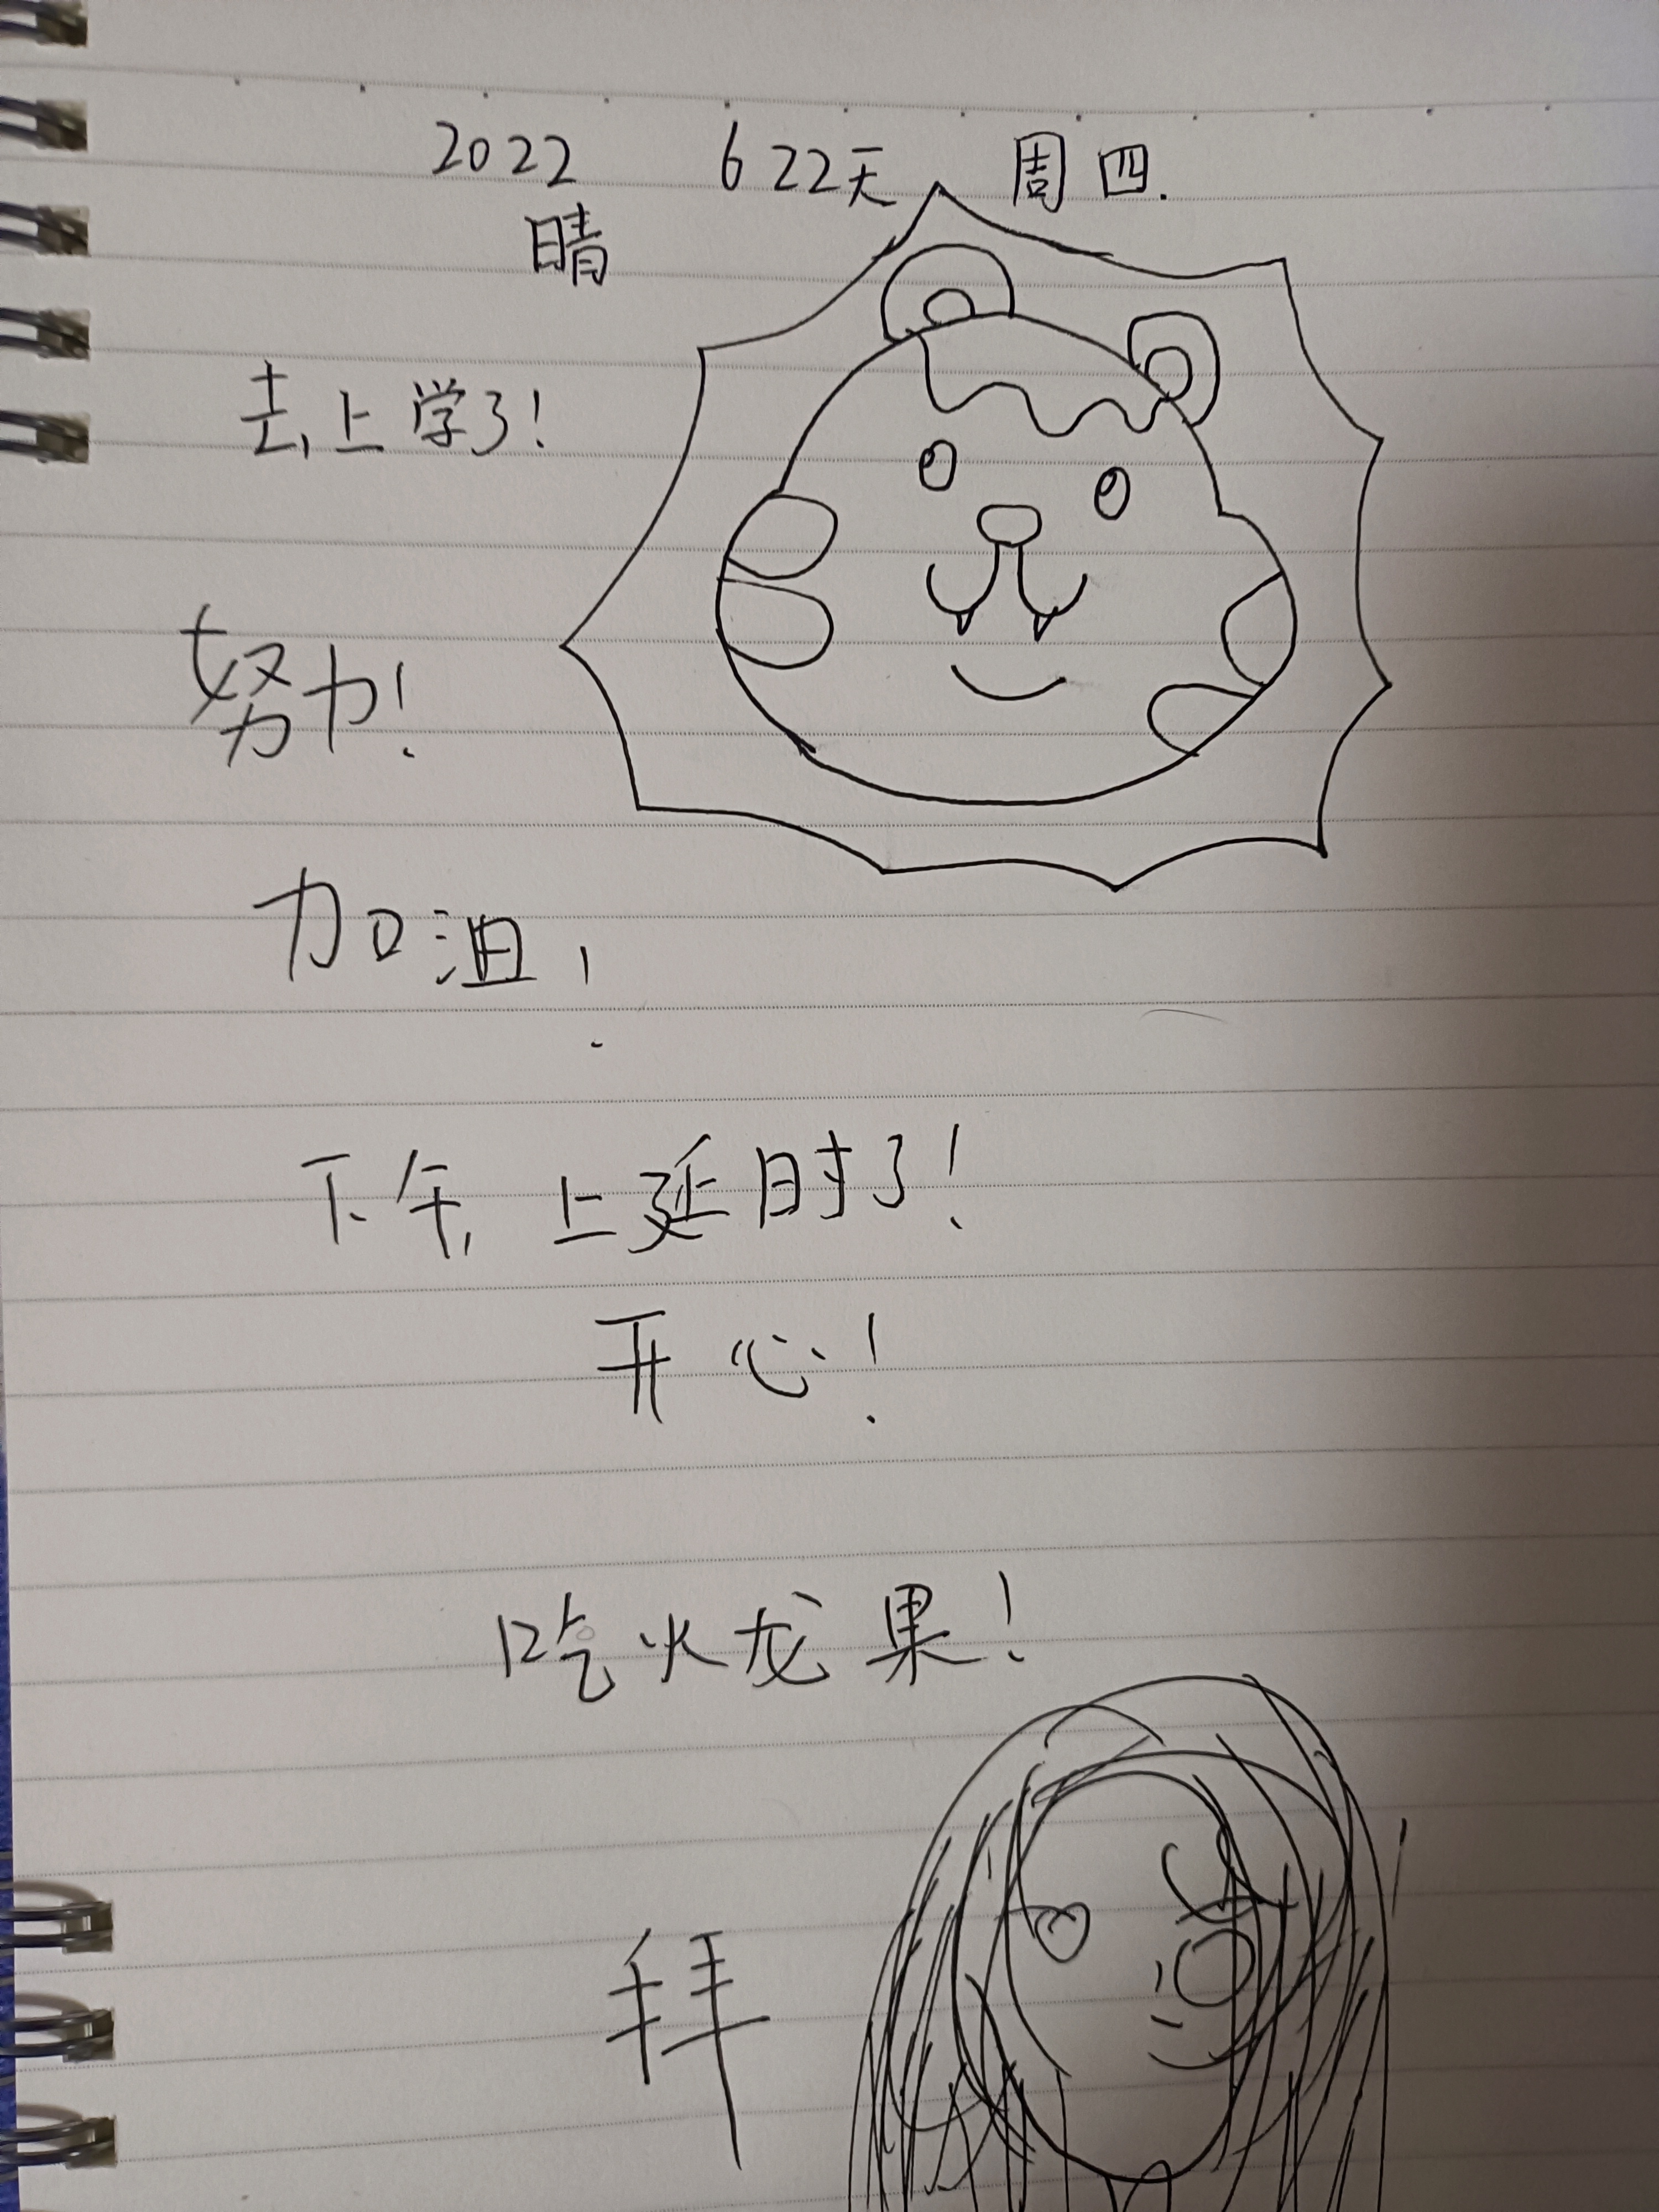 2022 622天 周四.
晴
去上学了!
努力!
加油!
下午上延时了!
开心!
吃火龙果!
拜